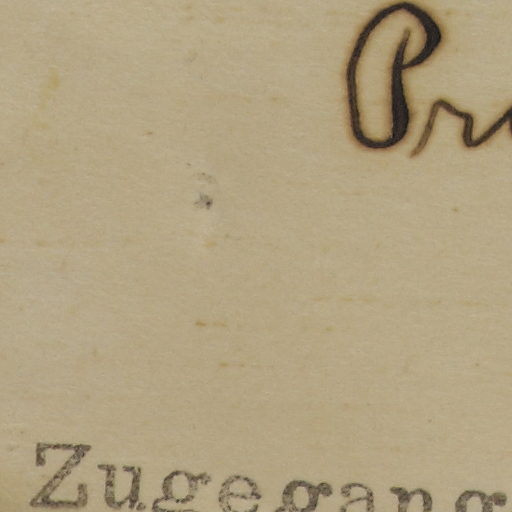 Pr
Zugegang